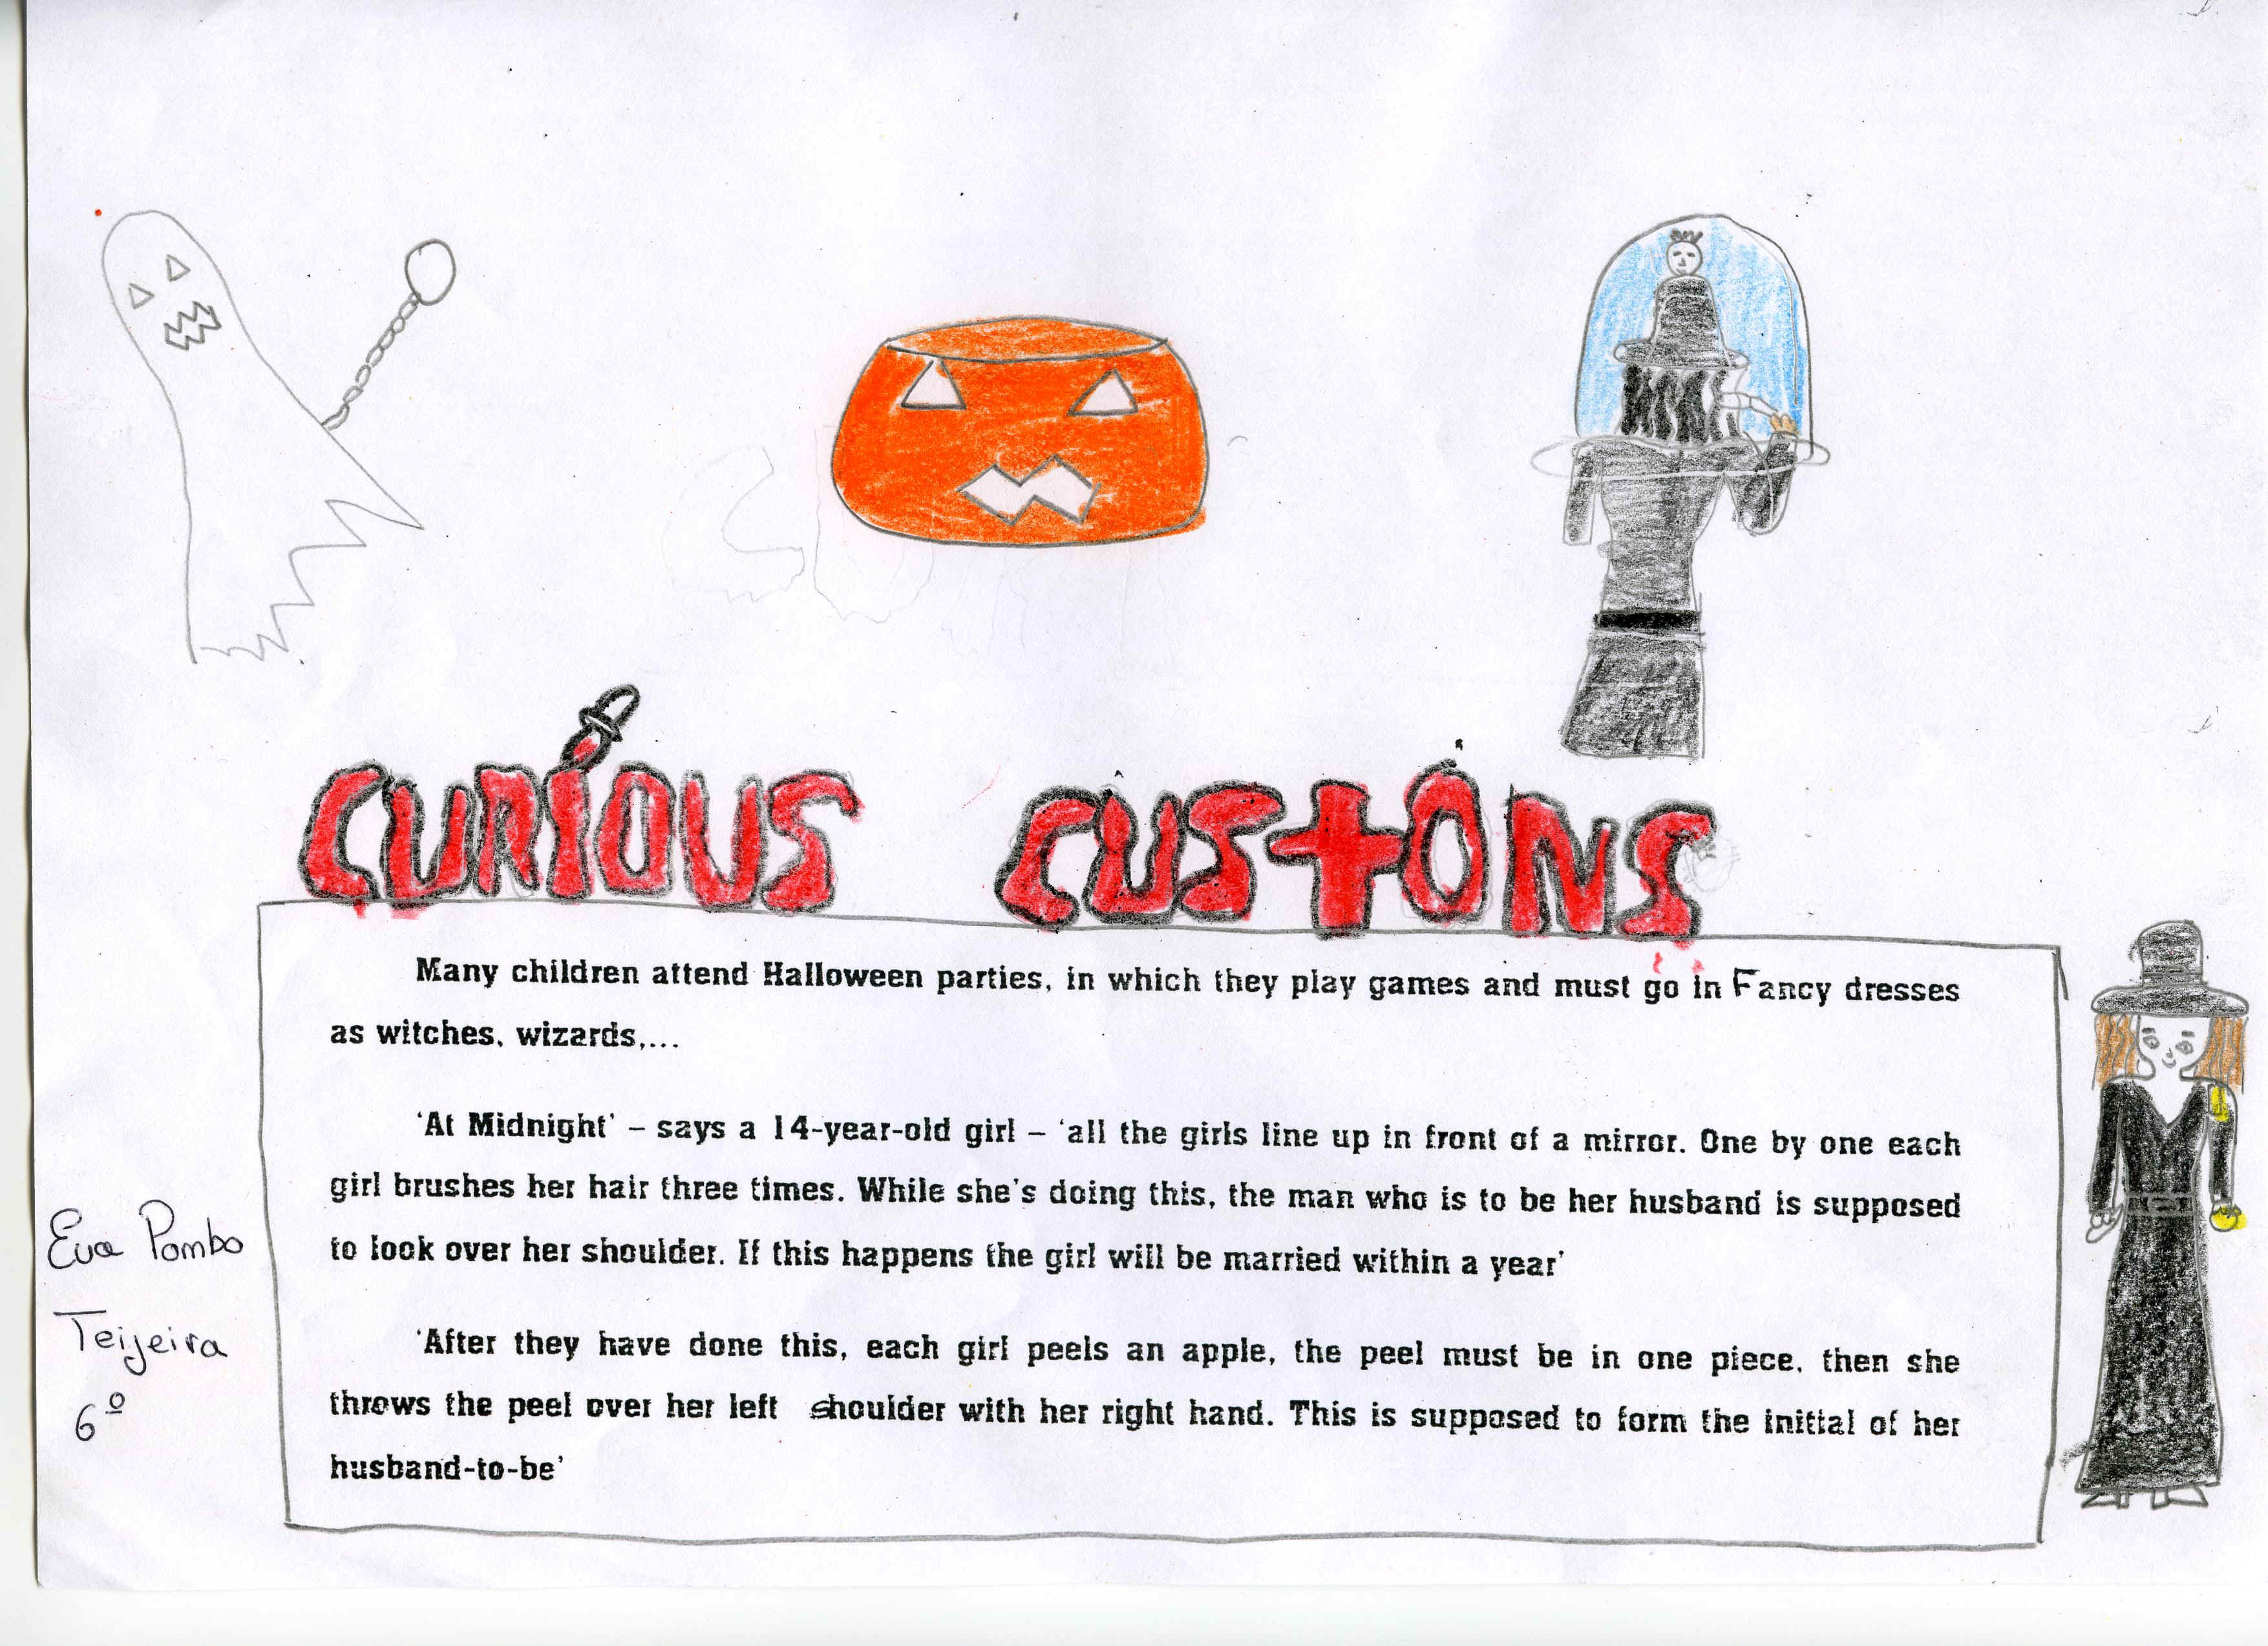 CURÍOUS CUSTONS
Many children attend Halloween parties, in which they play games and must go in Fancy dresses
as witches, wizards,...
'At Midnight' – says a 14-year-old girl – 'all the girls line up in front of a mirror. One by one each
girl brushes her hair three times. While she's doing this, the man who is to be her husband is supposed
to look over her shoulder. If this happens the girl will be married within a year'
'After they have done this, each girl peels an apple, the peel must be in one piece, then she
throws the peel over her left shoulder with her right hand. This is supposed to form the initial of her
husband-to-be'
Eva Pombo
Teijeira
6º